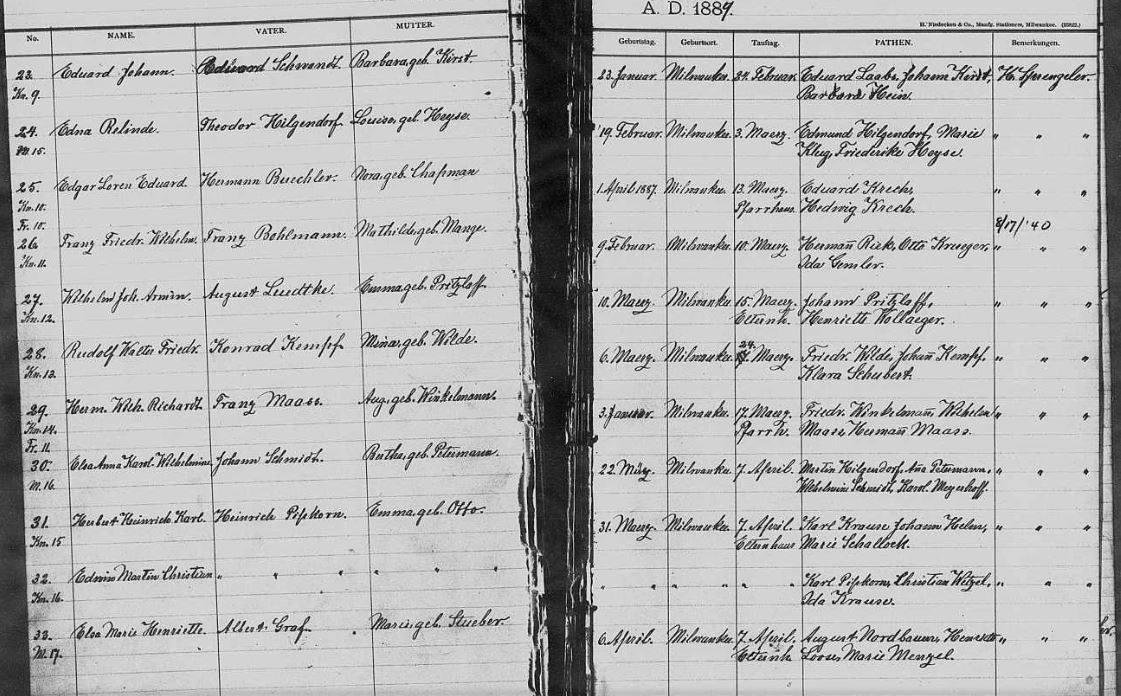 A. D. 1889.
H. Niedecken & Co., Manfg. Stationers, Milwaukee.
No. NAME. VATER. MUTTER. Geburtstag. Geburtsort. Tauftag. PATHEN. Bemerkungen.
23. Eduard Johann. Eduard Schwandt. Barbara, geb. Kirst. 23. Januar. Milwaukee. 24. Februar. Eduard Laabs, Johann Kirst, H. Sprengeler.
Kn. 9. Barbara Hein.
24. Edna Relinde. Theodor Hilgendorf. Louise, geb. Heyse. 19. Februar. Milwaukee. 3. Maerz. Edmund Hilgendorf, Marie " " "
M. 15. Klug, Friederike Heyse.
25. Edgar Loren Eduard. Hermann Buechler. Nora, geb. Chapman 1. April 1887. Milwaukee. 13. Maerz. Eduard Krech, " " "
Kn. 10. Pfarrhaus. Hedwig Krech.
Fr. 10. 8/17/'40
26. Franz Friedr. Wilhelm. Franz Bohlmann. Mathilde, geb. Mange. 9. Februar. Milwaukee. 10. Maerz. Hermann Rick, Otto Krueger, " " "
Kn. 11. Ida Gensler.
27. Wilhelm Joh. Armin. August Luedtke. Emma, geb. Pritzlaff. 10. Maerz. Milwaukee. 15. Maerz. Johann Pritzlaff, " " "
Kn. 12. Elternh. Henriette Wollaeger.
28. Rudolf Walter Friedr. Konrad Kempf. Mina, geb. Wilde. 6. Maerz. Milwaukee. 24. Maerz. Friedr. Wilde, Johann Kempf, " " "
Kn. 13. Klara Schubert.
29. Herm. Wilh. Richardt. Franz Maass. Aug., geb. Winkelmann. 3. Januar. Milwaukee. 17. Maerz. Friedr. Winkelmann, Wilhelm " " "
Kn. 14. Pfarrh. Maass, Hermann Maass.
Fr. 11.
30. Elsa Anna Karol. Wilhelmine. Johann Schmidt. Bertha, geb. Petermann. 22. März. Milwaukee. 7. April. Martin Hilgendorf, Ana Petermann, " " "
M. 16. Wilhelmine Schmidt, Karol. Meyerhoff.
31. Herbert Heinrich Karl. Heinrich Pipkorn. Emma, geb. Otto. 31. Maerz. Milwaukee. 7. April. Karl Krause, Johann Helm, " " "
Kn. 15 Elternhaus Marie Schallock.
32. Edwin Martin Christian " " " " " " " " " " " Karl Pipkorn, Christian Wetzel, " " "
Kn. 16. Ida Krause.
33. Elsa Marie Henriette. Albert Graf. Marie, geb. Stueber. 6. April. Milwaukee. 7. April. August Nordbaum, Henriette " " "
M. 17. Elternh. Loose, Marie Menzel.